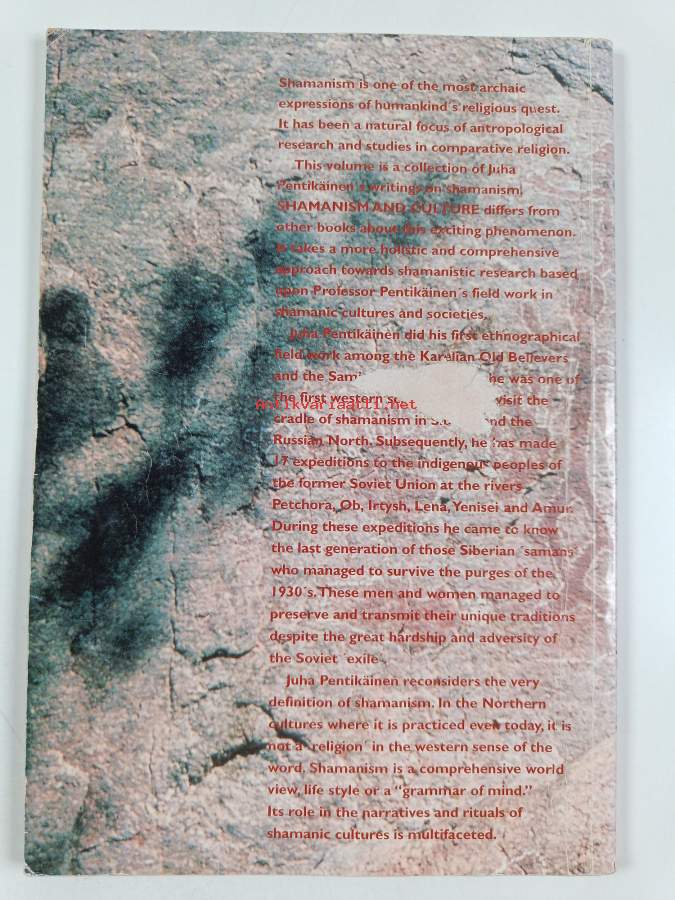 Shamanism is one of the most archaic
expressions of humankind´s religious quest.
It has been a natural focus of antropological
research and studies in comparative religion.
This volume is a collection of Juha
Pentikäinen´s writings on shamanism.
SHAMANISM AND CULTURE differs from
other books about this exciting phenomenon.
It takes a more holistic and comprehensive
approach towards shamanistic research based
upon Professor Pentikäinen´s field work in
shamanic cultures and societies.
Juha Pentikäinen did his first ethnographical
field work among the Karelian Old Believers
and the he was one of
the first western visit the
antikvariaatit.net
cradle of shamanism in the
Russian North. Subsequently, he has made
17 expeditions to the indigenous peoples of
the former Soviet Union at the rivers
Petchora, Ob, Irtysh, Lena, Yenisei and Amur.
During these expeditions he came to know
the last generation of those Siberian ´samans´
who managed to survive the purges of the
1930´s. These men and women managed to
preserve and transmit their unique traditions
despite the great hardship and adversity of
the Soviet ´exile´.
Juha Pentikäinen reconsiders the very
definition of shamanism. In the Northern
cultures where it is practiced even today, it is
not a ´religion´ in the western sense of the
word. Shamanism is a comprehensive world
view, life style or a “grammar of mind.”
Its role in the narratives and rituals of
shamanic cultures is multifaceted.